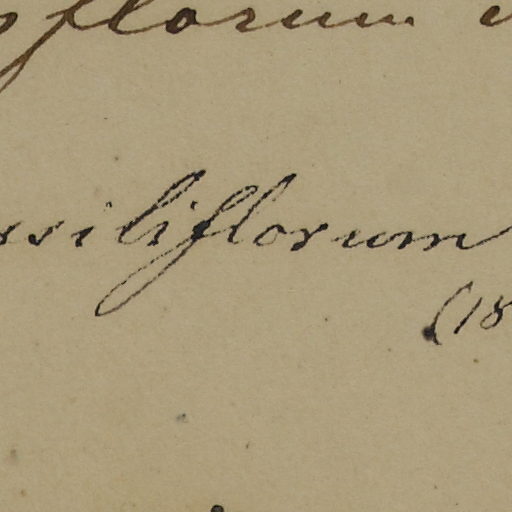 florum
ssiliflorum
(18